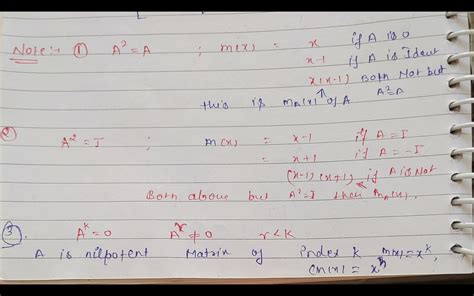 Note:- ① A² = A ; m(x) = x if A is 0
x-1 if A is Ident
x(x-1) Both Not but A²=A
this is mA(x) of A
② A² = I ; m(x) = x-1 if A = I
= x+1 if A = -I
(x-1)(x+1), if A is Not
Both above but A²=I then mA(x).
③. A^k = 0 A^r ≠ 0 r < k
A is nilpotent Matrix of index k m(x) = x^k,
CM(x) = x^n